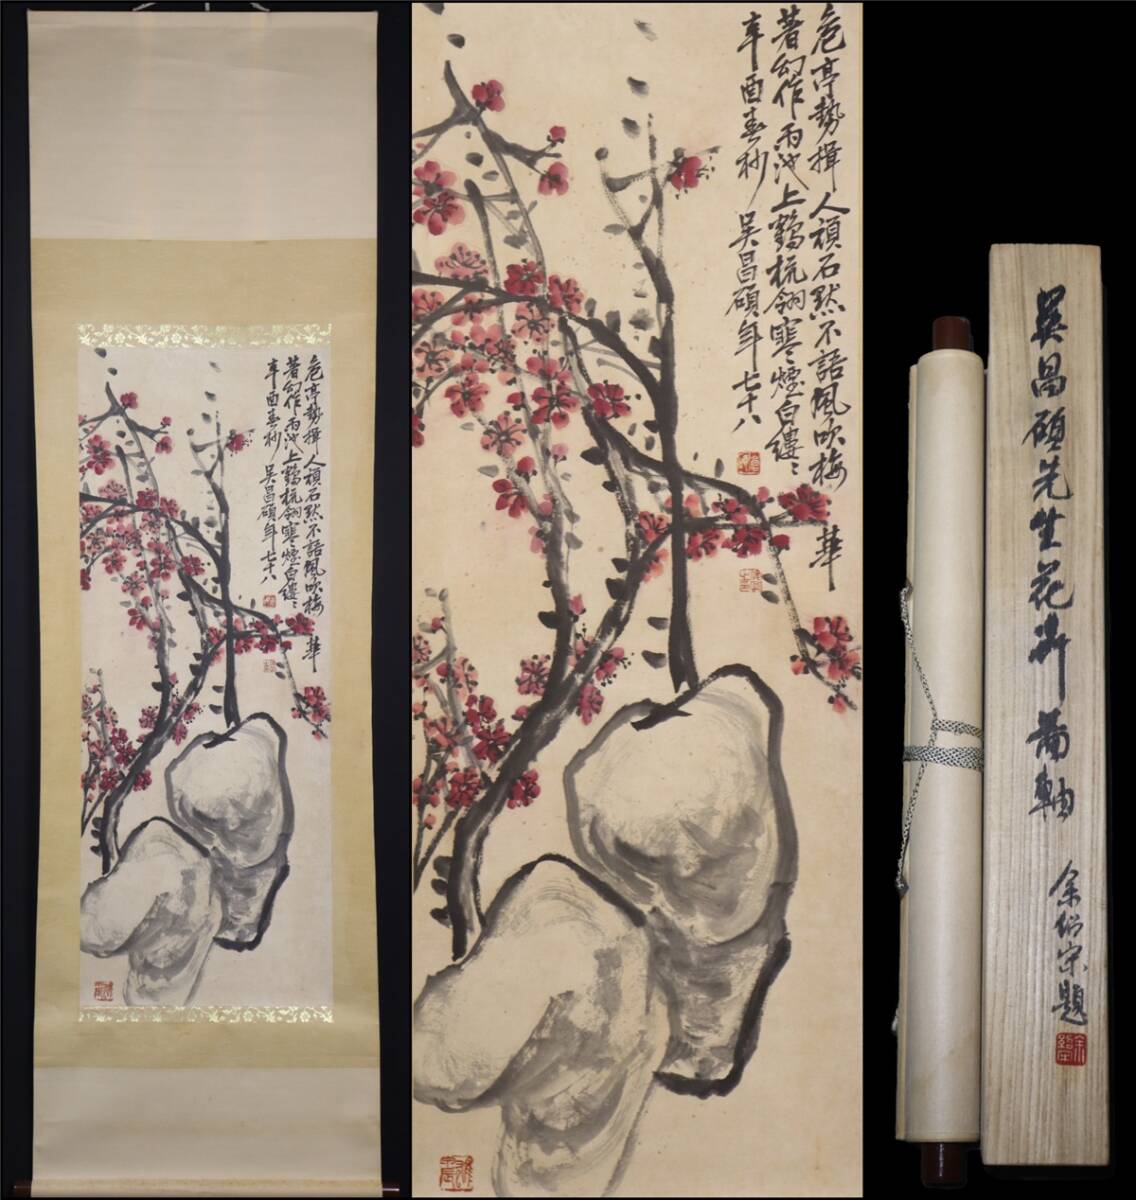 危亭勢揖人頑石默不語風吹梅華
著幻作雨池上鶴梳翎寒煙白縷〻
辛酉春杪 吳昌碩年七十八
危亭勢揖人頑石默不語風吹梅華
著幻作雨池上鶴梳翎寒煙白縷〻
辛酉春杪 吳昌碩年七十八
吳昌碩先生花卉菌軸
余紹宋題